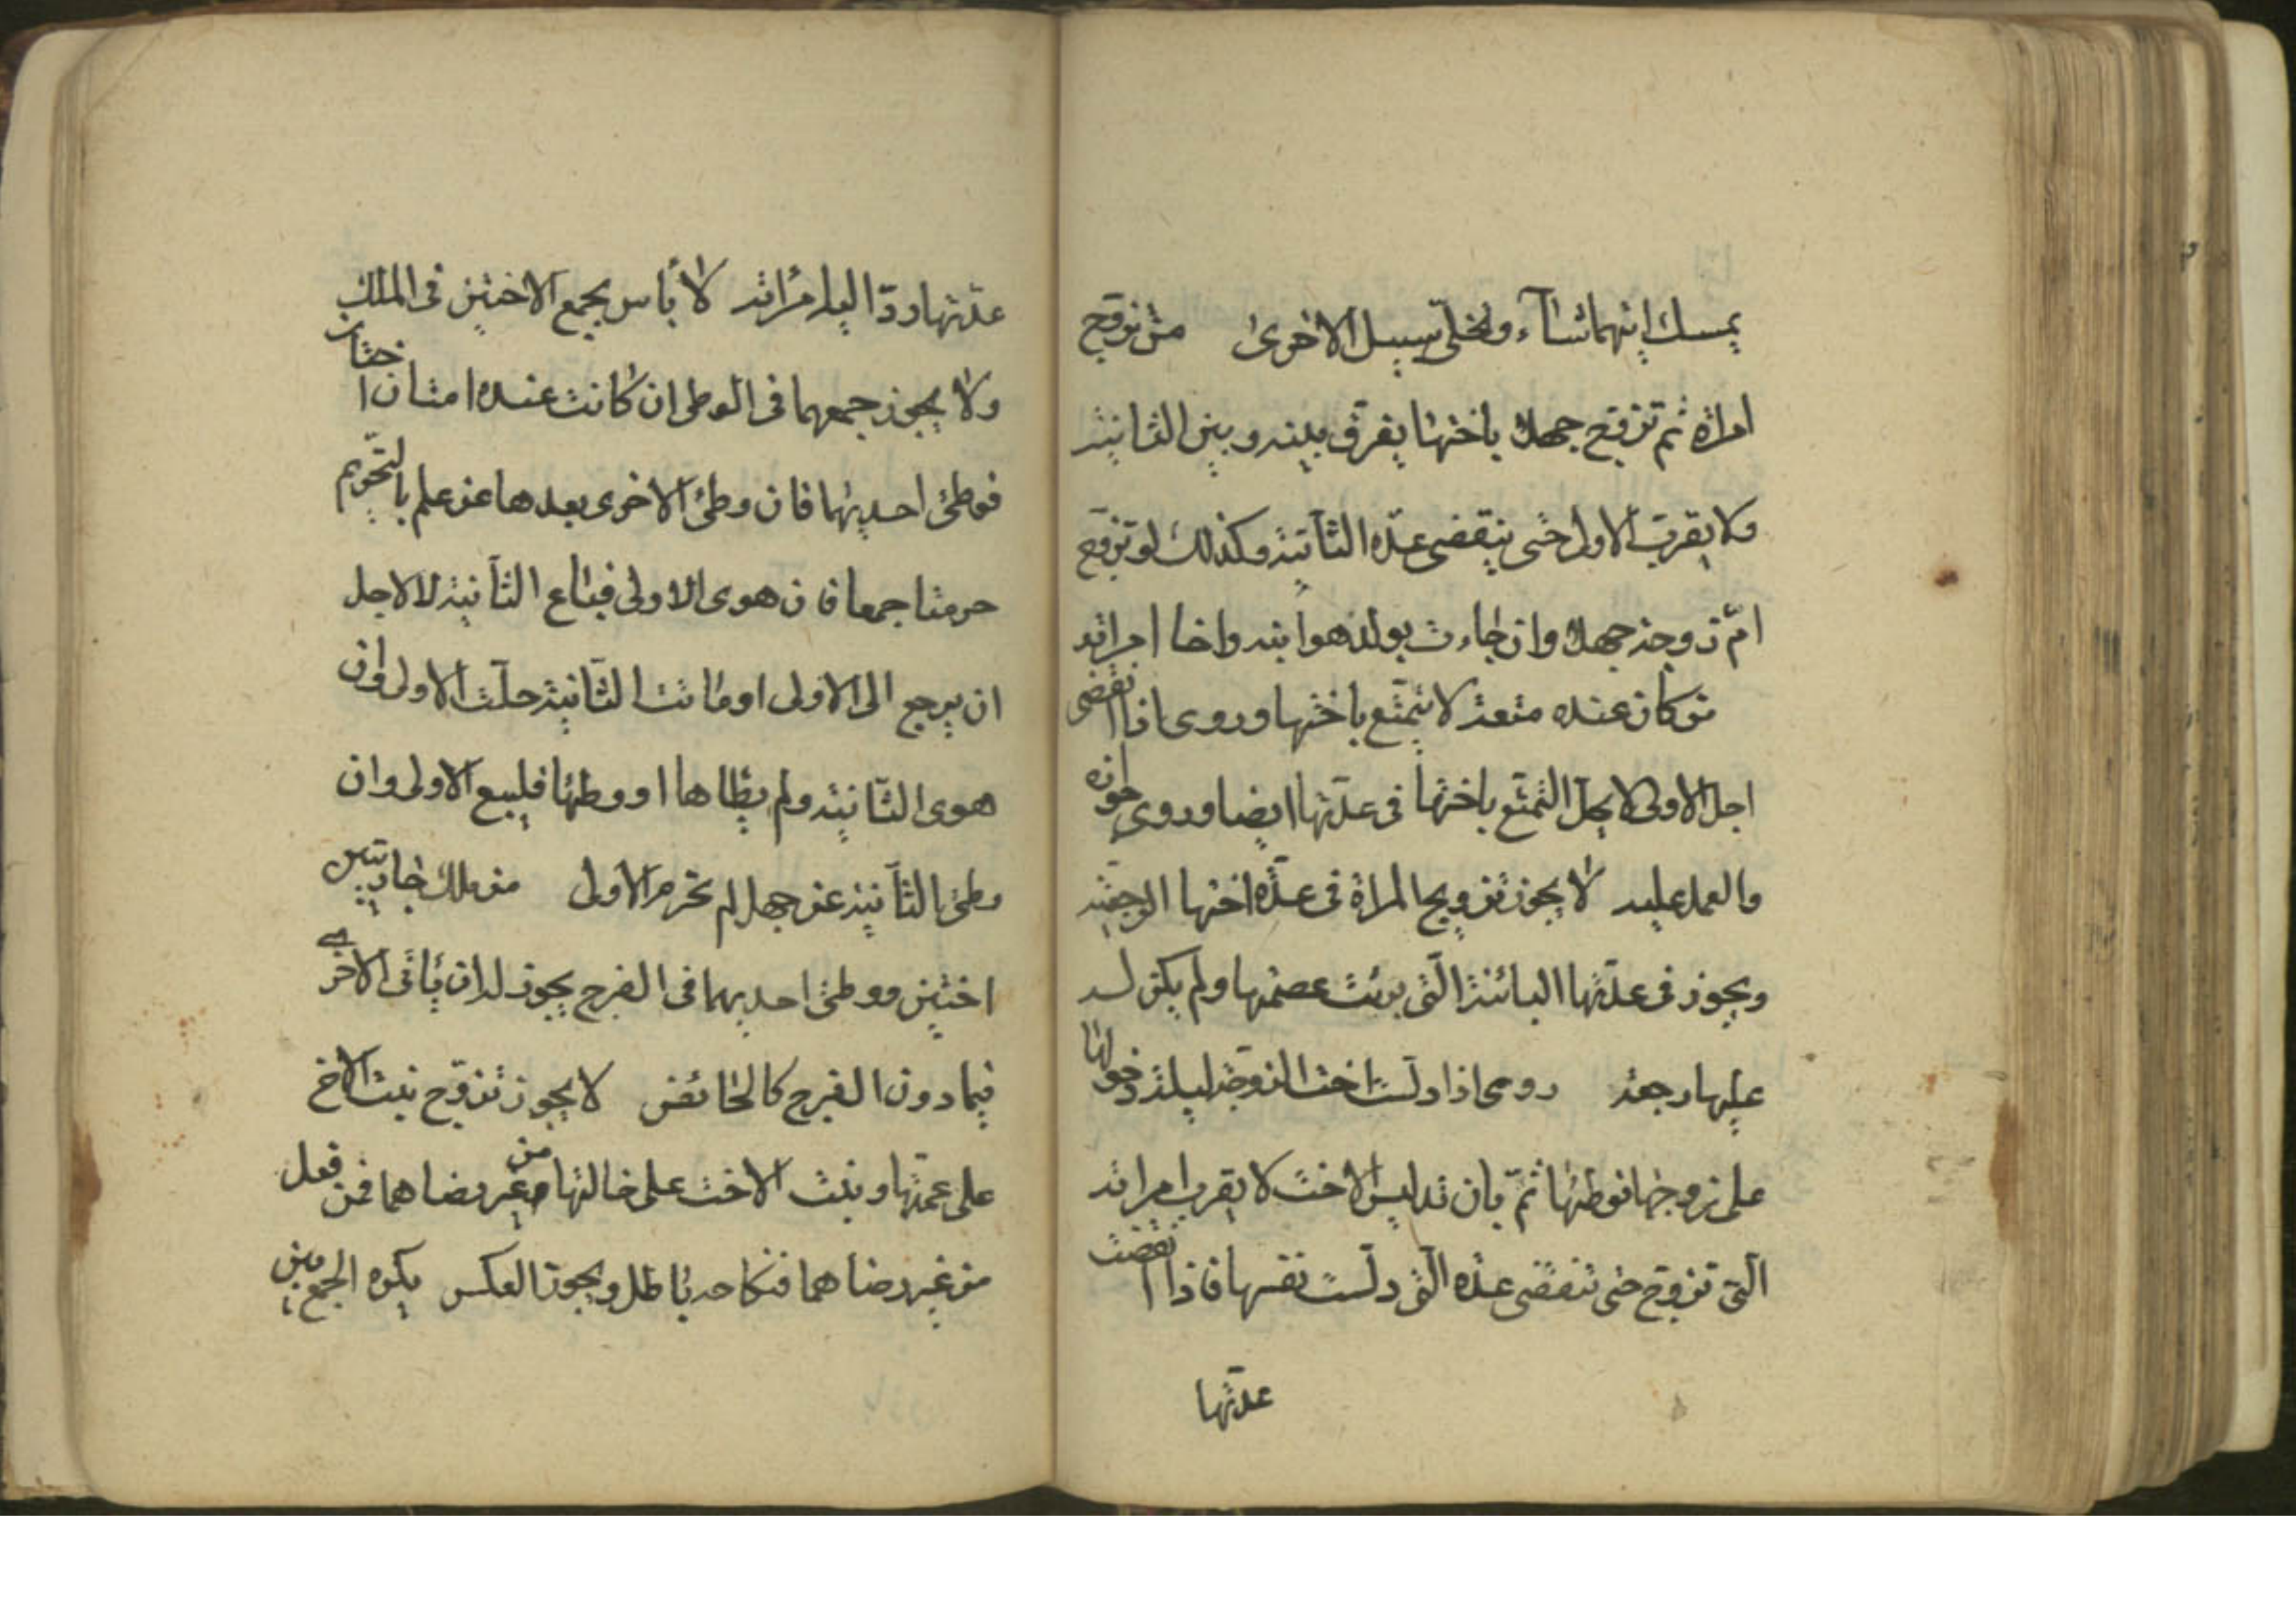 يمسك ايتهما شآء ويخلّى سبيل الاخرى من تزوّج
امراة ثم تزوّج جهلا باختها يفرّق بينه وبين الثانية
ولا يقرب الاولى حتى ينقضى عدّة الثانية وكذلك لو تزوّج
امّ زوجته جهلا وان جاءت بولد هو ابنه واخا امراته
من كان عنده متعة لا يتمتّع باختها وروى اذا انقضى
اجل الاولى لا يحلّ التمتّع باختها فى عدّتها ايضا وروى جوازه
والعمل عليه لا يجوز تزويج المراة فى عدّة اختها الرجعيّة
ويجوز فى عدّتها البائنة الّتى برئت عصمتها ولم يكن له
عليها رجعة روى اذا دلّست اخت الزوجة ليلة دخولها
على زوجها فوطئها ثمّ بان تدليس الاخت لا يقرب امراته
الّتى تزوّج حتى تنقضى عدّة الّتى دلّست نفسها فاذا انقضت
عدّتها
عدّتها ردّ اليه امراته لا بأس بجمع الاختين فى الملك
ولا يجوز جمعهما فى الوطى ان كانت عنده امتان اختان
فوطئ احديهما فان وطئ الاخرى بعدها عن علم بالتّحريم
حرمتا جمعا فان هوى الاولى فباع الثانية لا لاجل
ان يرجع الى الاولى او ماتت الثّانية حلّت الاولى وان
هوى الثّانية ولم يطاها او وطئها فليبع الاولى وان
وطئ الثّانية عن جهل لم تحرم الاولى من ملك جاريتين
اختين ووطئ احديهما فى الفرج يجوز له ان يأتى الاخرى
فيما دون الفرج كالحائض لا يجوز تزوّج بنت الاخ
على عمّتها وبنت الاخت على خالتها من غير رضاهما فمن فعل
من غير رضاهما فنكاحه باطل ويجوز العكس يكره الجمع بين